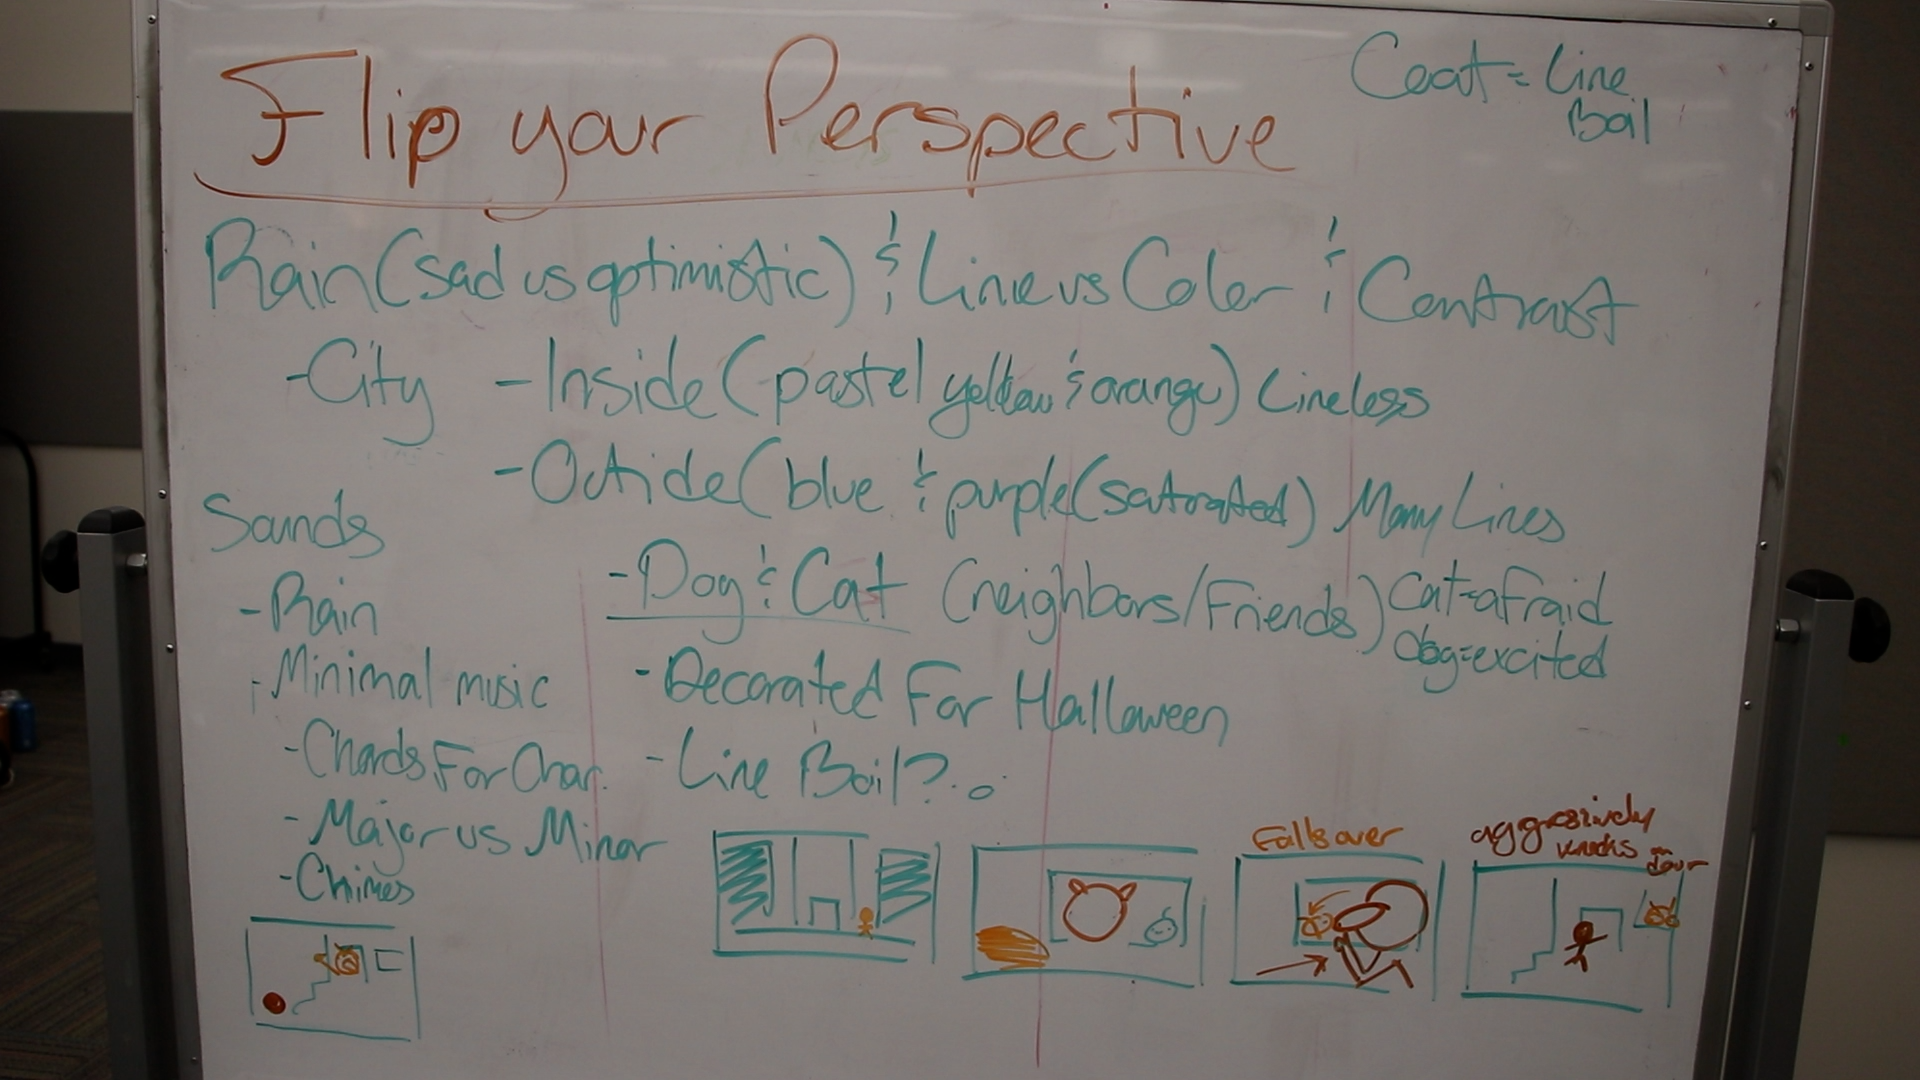 Flip your Perspective
Coat = Line
Boil
Rain (sad vs optimistic) & Line vs Color & Contrast
- City - Inside (pastel yellow & orange) Lineless
- Outside (blue & purple (saturated) Many Lines
Sounds
- Rain
- Minimal music
- Chords For Char.
- Major vs Minor
- Chimes
- Dog & Cat (neighbors/Friends) Cat=afraid
dog=excited
- Decorated For Halloween
- Line Boil?
Falls over
aggressively
knocks on
door